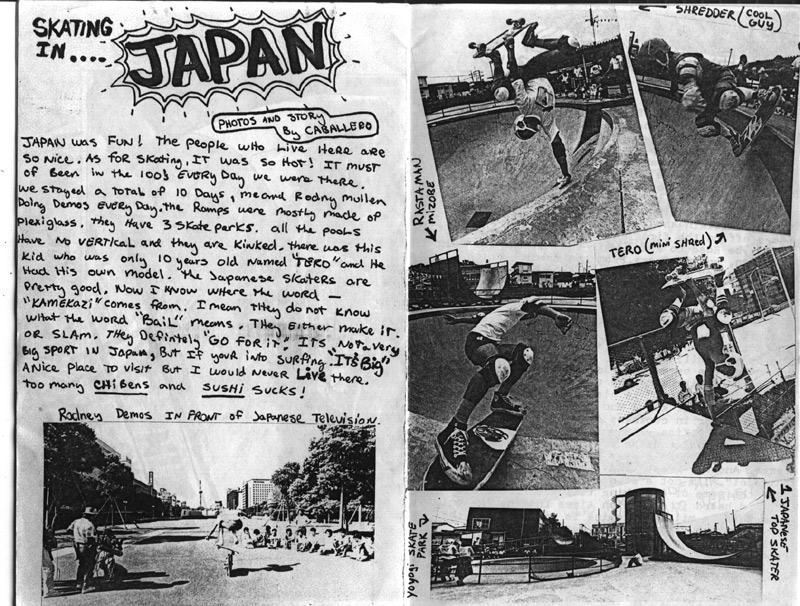 SKATING
IN.....
JAPAN
PHOTOS AND STORY
By CABALLERO
JAPAN was FUN! The people who Live HeRe are
so Nice. As for Skating, IT was so Hot! IT must
of Been in the 100's EVERY Day we were there.
we stayed a total of 10 Days, me and Rodney Mullen
Doing Demos EVERY Day. the Ramps were mostly made of
plexiglass. they Have 3 skateparks. all the pools
Have No VERTICAL and they are Kinked. there was this
Kid who was only 10 years old Named "TERO" and He
Had His own model. the Japanese Skaters are
Pretty good. Now I know where the word —
"KAMEKAZI" comes from. I mean They do not know
what the word "BaiL" means. They Either make it
OR SLAM. They Definitely "GO FOR iT". ITS Not a very
Big SPORT IN JAPAN, But If your into SURFing "IT'S Big"
A Nice Place TO Visit But I would Never Live there.
too many CHiBENS and SUSHi SUCKS!
Rodney Demos IN FRONT of Japanese Television.
SHREDDER (COOL
GUY)
RASTAMAN
MIZOBE
TERO (mini Shred)
YOYOGI SKATE
PARK
JAPANESE
TOP SKATER